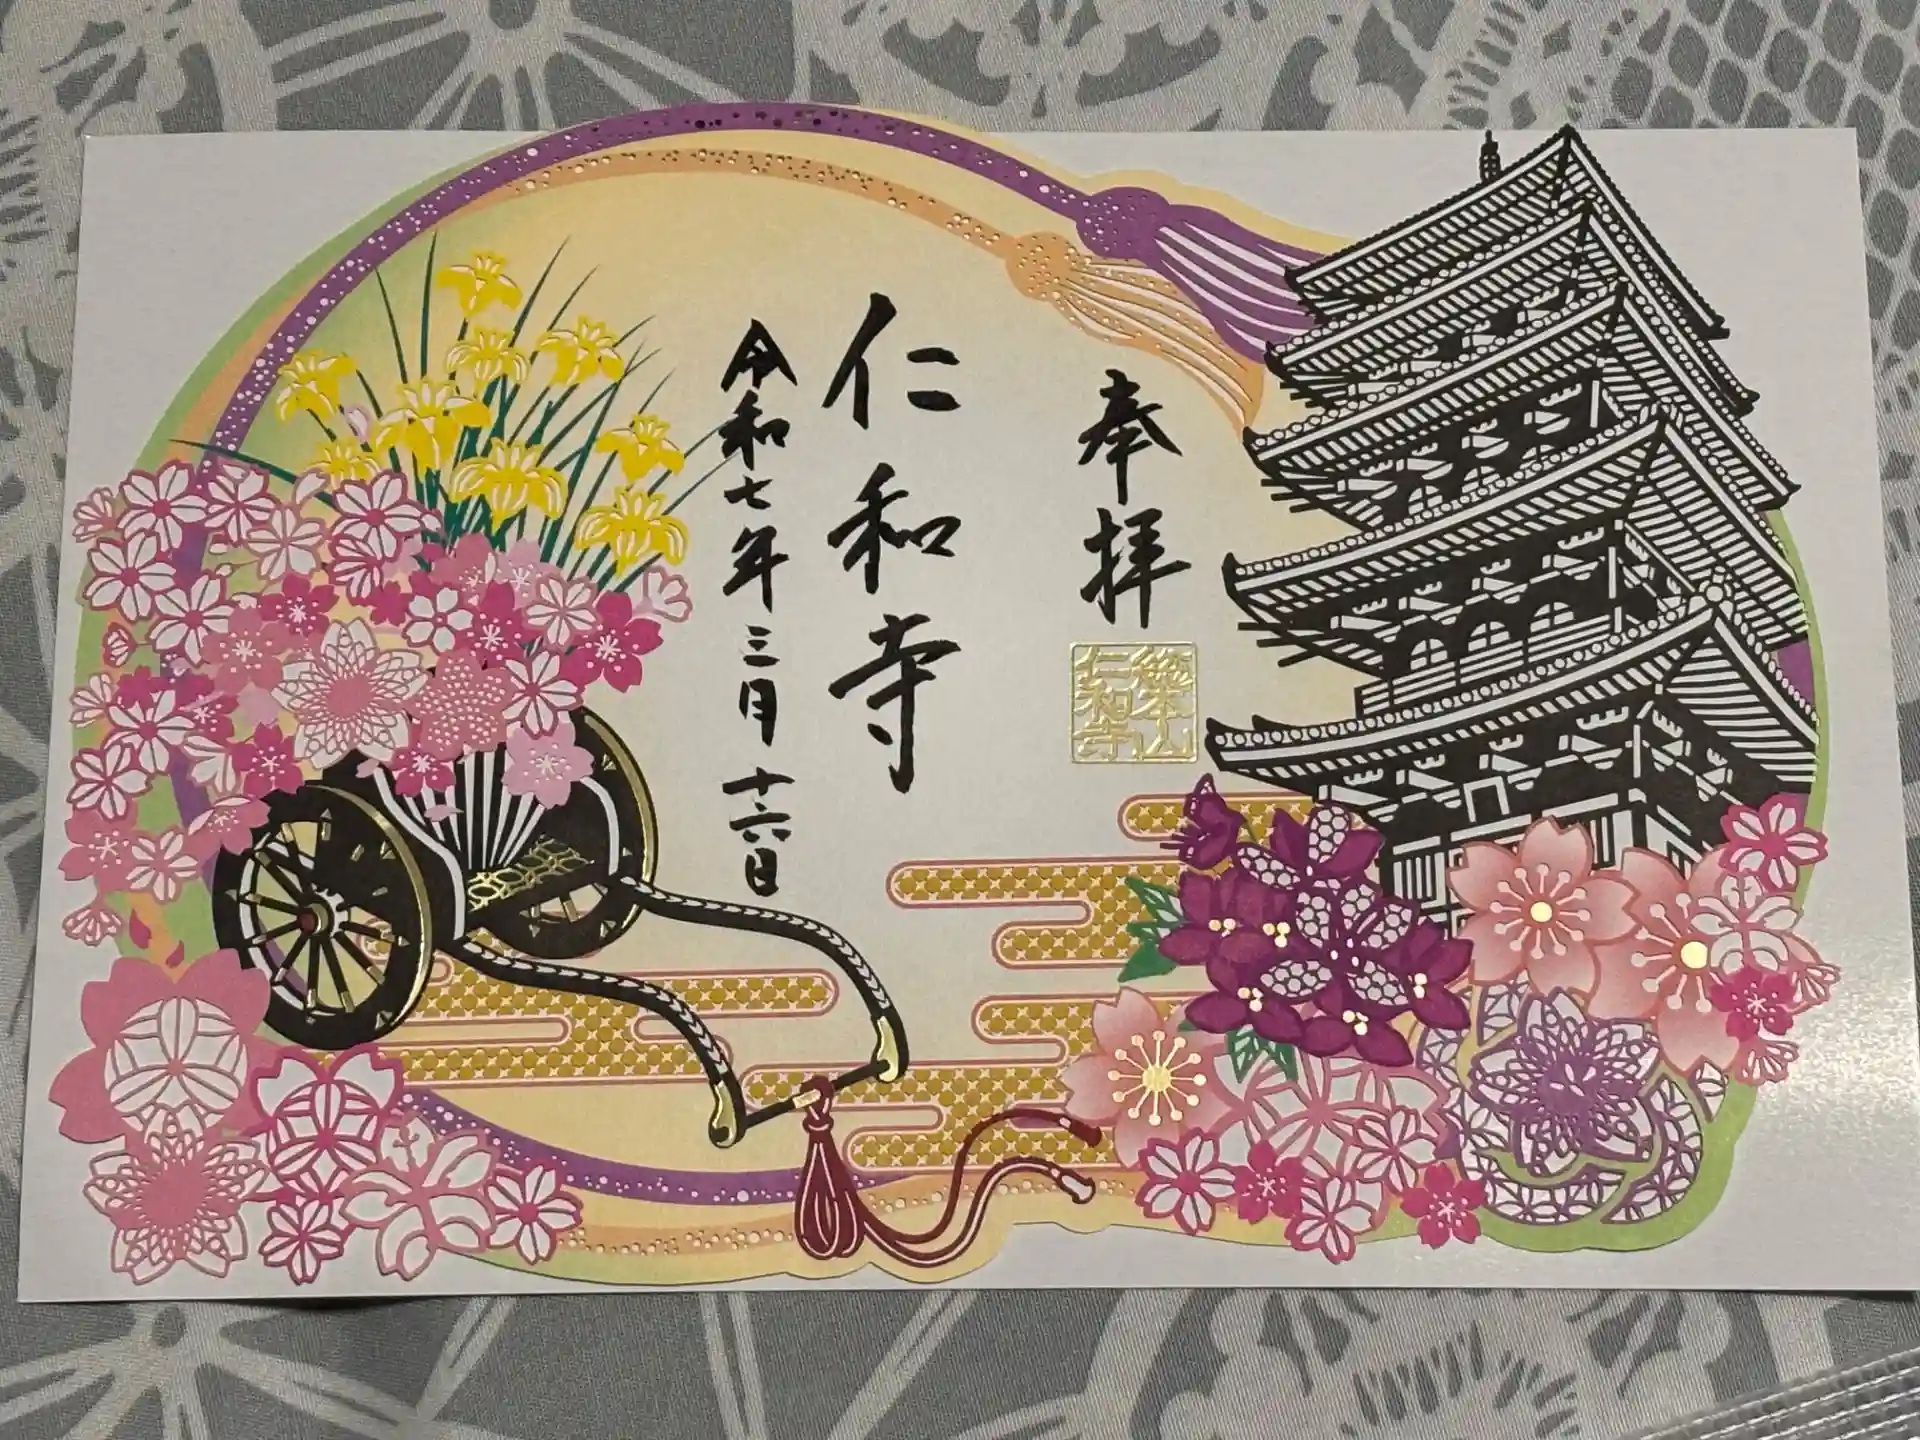 奉拝
総本山
仁和寺
仁和寺
令和七年三月十六日